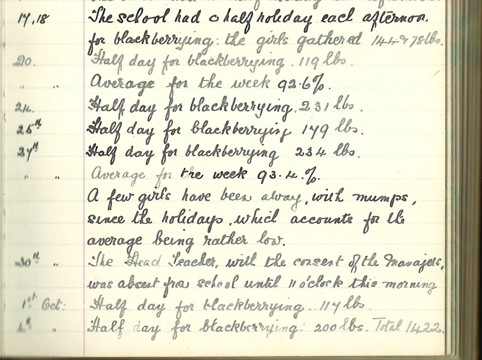 17,18 The school had a half holiday each afternoon
for blackberrying: the girls gathered 144 & 78 lbs.
20. Half day for blackberrying. 119 lbs.
" " Average for the week 92.6%.
24. Half day for blackberrying. 231 lbs.
25th Half day for blackberrying 179 lbs.
27th Half day for blackberrying 234 lbs.
" " Average for the week 93.4.%.
A few girls have been away, with mumps,
since the holidays, which accounts for the
average being rather low.
30th " The Head Teacher, with the consent of the Managers,
was absent from school until 11 o'clock this morning
1st Oct: Half day for blackberrying. 117 lbs.
4th " Half day for blackberrying: 200 lbs. Total 1422.